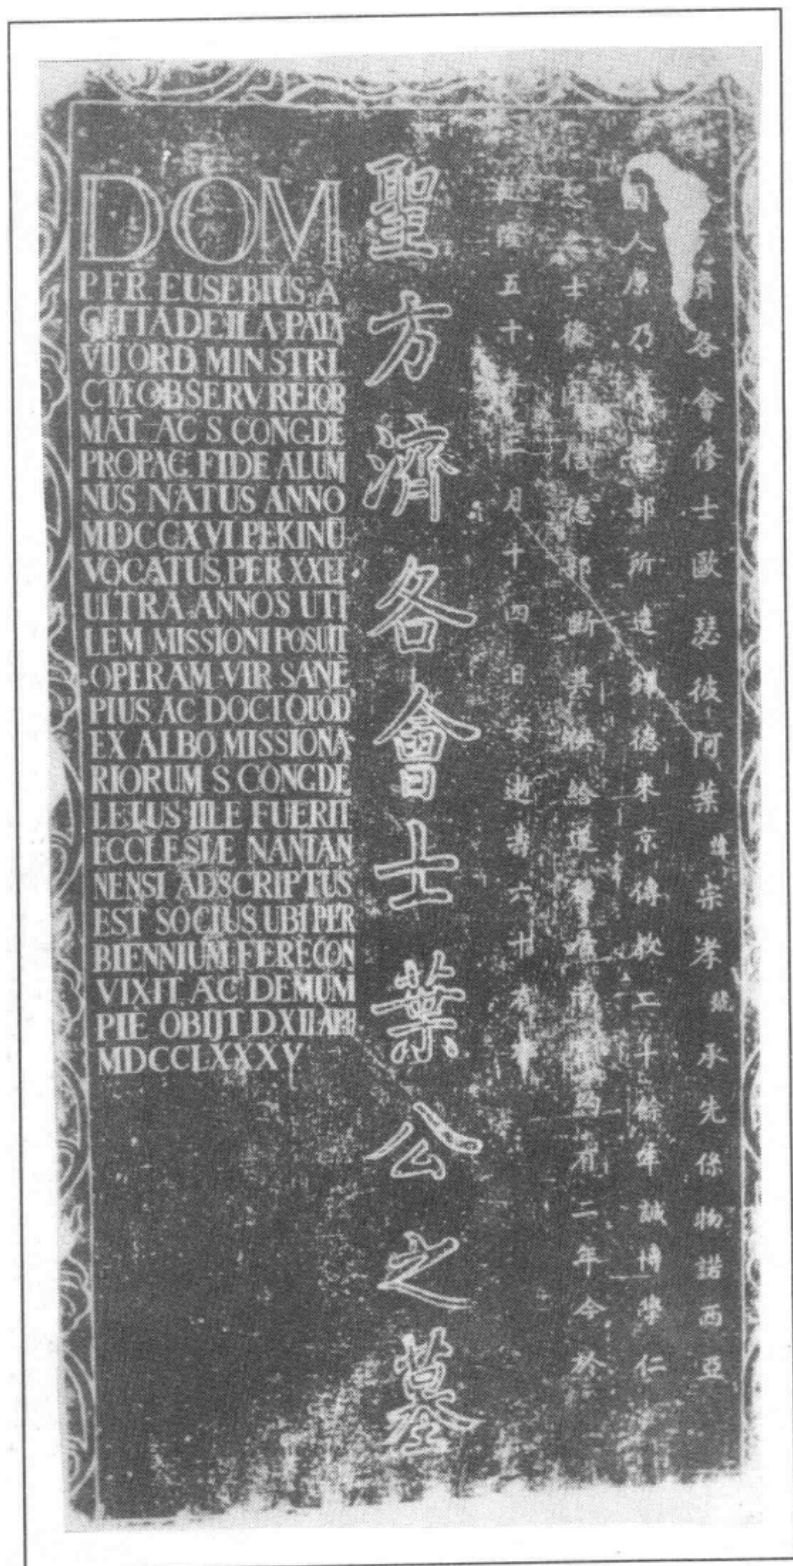 DOM
P FR EUSEBIUS A
CITTADEILA PATA
VIJ ORD MIN STRI
CTÆ OBSERV REFOR
MAT AC S CONG DE
PROPAG FIDE ALUM
NUS NATUS ANNO
MDCCXVI PEKINŪ
VOCATUS PER XX ET
ULTRA ANNOS UTI
LEM MISSIONI POSUIT
OPERAM VIR SANE
PIUS AC DOCT QUOD
EX ALBO MISSIONA
RIORUM S CONG DE
LETUS ILLE FUERIT
ECCLESIÆ NANTAN
NENSI ADSCRIPTUS
EST SOCIUS UBI PER
BIENNIUM FERE CON
VIXIT AC DEMUM
PIE OBIJT D XII APR
MDCCLXXXV
聖方濟各會士葉公之墓
濟各會修士歐瑟彼阿葉諱宗孝號承先係物諾西亞
國人原乃部所遣鐸德來京傳教二十餘年誠博學仁
慈之士後因信德部斷其給南有二年今於
隆五十年三月十四日安逝壽六十有